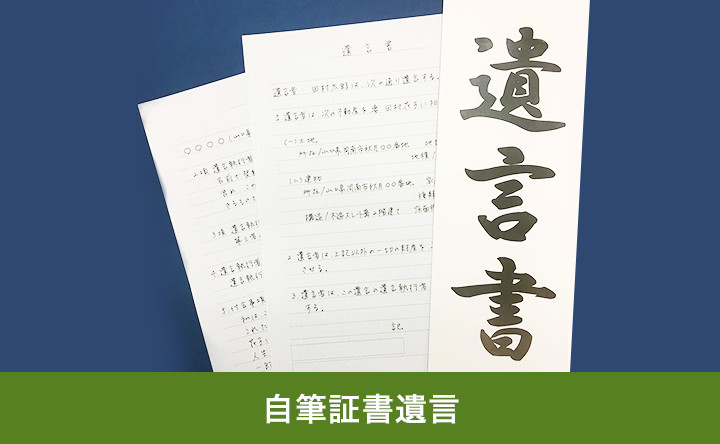 遺言書
遺言者 田村太郎は、次の通り遺言する。
1.遺言者は、次の不動産を妻 田村花子に相
(一)土地
所在/山口県周南市秋月〇〇番地 地
地積/
(二)建物
所在/山口県周南市秋月〇〇番地
種類
構造/木造スレート葺2階建て 床面積
2.遺言者は、上記以外の一切の財産を
させる。
3.遺言者は、この遺言の遺言執行者
する。
記
〇〇〇〇(山口県
2項 遺言執行者
3項 遺言
第三者
4.遺言執行者
遺言執行
5.付言事項
私は
これ
花子
人生
遺言書
自筆証書遺言